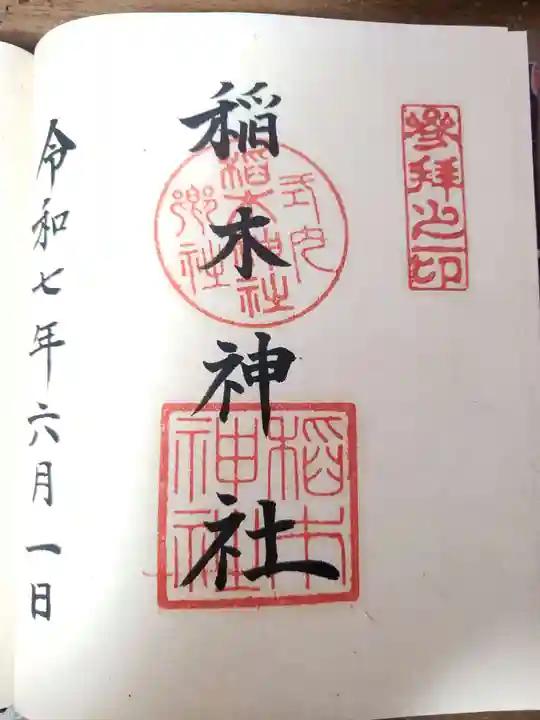 參拜之印
稲木神社
式内
稲木神社
郷社
稲木
神社
令和七年六月一日